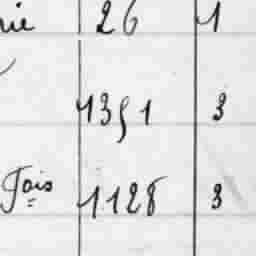 rie 26 1
1351 3
Jais 1128 3